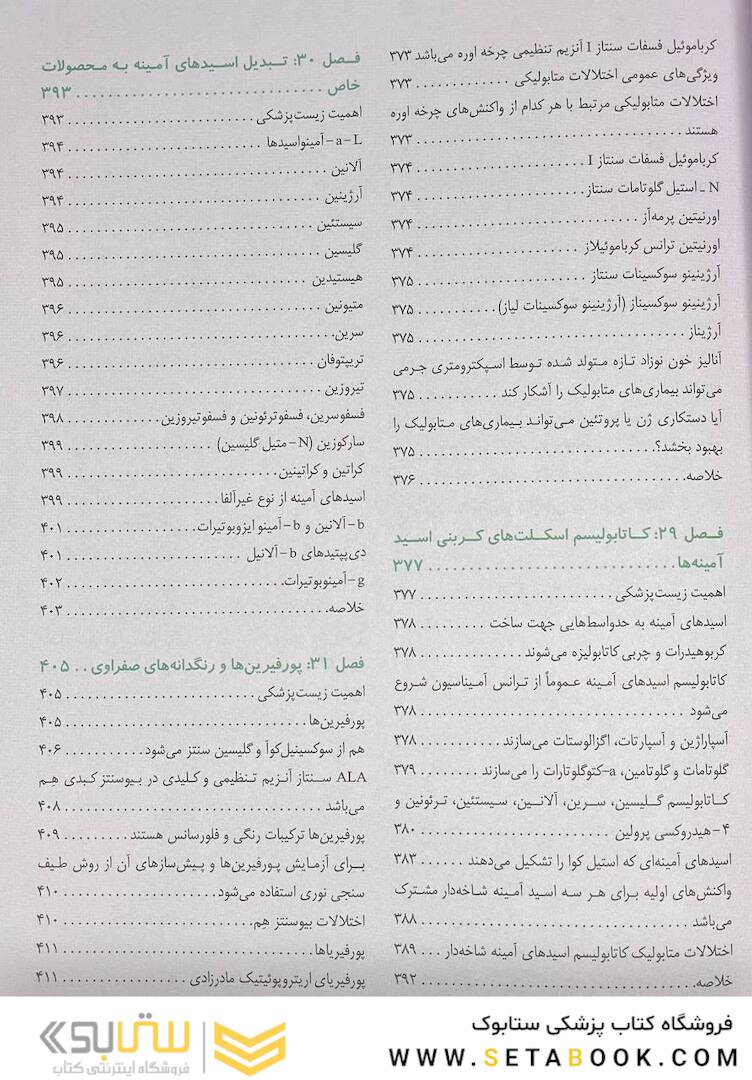 کرباموئیل فسفات سنتاز I آنزیم تنظیمی چرخه اوره می‌باشد ۳۷۳
ویژگی‌های عمومی اختلالات متابولیکی . . . . . . . . . . . . ۳۷۳
اختلالات متابولیکی مرتبط با هر کدام از واکنش‌های چرخه اوره
هستند . . . . . . . . . . . . ۳۷۳
کرباموئیل فسفات سنتاز I . . . . . . . . . . . . ۳۷۴
N ـ استیل گلوتامات سنتاز . . . . . . . . . . . . ۳۷۴
اورنیتین پرمه‌آز . . . . . . . . . . . . ۳۷۴
اورنیتین ترانس کرباموئیلاز . . . . . . . . . . . . ۳۷۴
آرژینینو سوکسینات سنتاز . . . . . . . . . . . . ۳۷۵
آرژینینو سوکسیناز (آرژینینو سوکسینات لیاز) . . . . . . . . . . . . ۳۷۵
آرژیناز . . . . . . . . . . . . ۳۷۵
آنالیز خون نوزاد تازه متولد شده توسط اسپکترومتری جرمی
می‌تواند بیماری‌های متابولیک را آشکار کند . . . . . . . . . . . . ۳۷۵
آیا دستکاری ژن یا پروتئین می‌تواند بیماری‌های متابولیک را
بهبود بخشد؟ . . . . . . . . . . . . ۳۷۵
خلاصه . . . . . . . . . . . . ۳۷۶
فصل ۲۹: کاتابولیسم اسکلت‌های کربنی اسید
آمینه‌ها . . . . . . . . . . . . ۳۷۷
اهمیت زیست‌پزشکی . . . . . . . . . . . . ۳۷۷
اسیدهای آمینه به حدواسط‌هایی جهت ساخت . . . . . . . . . ۳۷۸
کربوهیدرات و چربی کاتابولیزه می‌شوند . . . . . . . . . . . . ۳۷۸
کاتابولیسم اسیدهای آمینه عموماً از ترانس آمیناسیون شروع
می‌شود . . . . . . . . . . . . ۳۷۸
آسپاراژین و آسپارتات، اگزالوستات می‌سازند . . . . . . . . . . . . ۳۷۸
گلوتامات و گلوتامین، a-کتوگلوتارات را می‌سازند . . . . . . . . ۳۷۹
کاتابولیسم گلیسین، سرین، آلانین، سیستئین، ترئونین و
۴-هیدروکسی پرولین . . . . . . . . . . . . ۳۸۰
اسیدهای آمینه‌ای که استیل کوا را تشکیل می‌دهند . . . . . . ۳۸۳
واکنش‌های اولیه برای هر سه اسید آمینه شاخه‌دار مشترک
می‌باشد . . . . . . . . . . . . ۳۸۸
اختلالات متابولیک کاتابولیسم اسیدهای آمینه شاخه‌دار . . . ۳۸۹
خلاصه . . . . . . . . . . . . ۳۹۲
فصل ۳۰: تبدیل اسیدهای آمینه به محصولات
خاص . . . . . . . . . . . . ۳۹۳
اهمیت زیست‌پزشکی . . . . . . . . . . . . ۳۹۳
a-L-آمینواسیدها . . . . . . . . . . . . ۳۹۴
آلانین . . . . . . . . . . . . ۳۹۴
آرژینین . . . . . . . . . . . . ۳۹۴
سیستئین . . . . . . . . . . . . ۳۹۵
گلیسین . . . . . . . . . . . . ۳۹۵
هیستیدین . . . . . . . . . . . . ۳۹۵
متیونین . . . . . . . . . . . . ۳۹۶
سرین . . . . . . . . . . . . ۳۹۶
تریپتوفان . . . . . . . . . . . . ۳۹۶
تیروزین . . . . . . . . . . . . ۳۹۷
فسفوسرین، فسفوترئونین و فسفوتیروزین . . . . . . . . . . . . ۳۹۸
سارکوزین (N-متیل گلیسین) . . . . . . . . . . . . ۳۹۹
کراتین و کراتینین . . . . . . . . . . . . ۳۹۹
اسیدهای آمینه از نوع غیرآلفا . . . . . . . . . . . . ۳۹۹
b-آلانین و b-آمینو ایزوبوتیرات . . . . . . . . . . . . ۴۰۱
دی‌پپتیدهای b-آلانیل . . . . . . . . . . . . ۴۰۱
g-آمینوبوتیرات . . . . . . . . . . . . ۴۰۲
خلاصه . . . . . . . . . . . . ۴۰۳
فصل ۳۱: پورفیرین‌ها و رنگدانه‌های صفراوی . . ۴۰۵
اهمیت زیست‌پزشکی . . . . . . . . . . . . ۴۰۵
پورفیرین‌ها . . . . . . . . . . . . ۴۰۵
هم از سوکسینیل‌کوآ و گلیسین سنتز می‌شود . . . . . . . . . . . ۴۰۶
ALA سنتاز آنزیم تنظیمی و کلیدی در بیوسنتز کبدی هم
می‌باشد . . . . . . . . . . . . ۴۰۸
پورفیرین‌ها ترکیبات رنگی و فلورسانس هستند . . . . . . . . . ۴۰۹
برای آزمایش پورفیرین‌ها و پیش‌سازهای آن از روش طیف
سنجی نوری استفاده می‌شود . . . . . . . . . . . . ۴۱۰
اختلالات بیوسنتز هم . . . . . . . . . . . . ۴۱۰
پورفیریاها . . . . . . . . . . . . ۴۱۱
پورفیریای اریتروپوئیتیک مادرزادی . . . . . . . . . . . . ۴۱۱
فروشگاه کتاب پزشکی ستابوک
WWW.SETABOOK.COM
ستابوک
فروشگاه اینترنتی کتاب